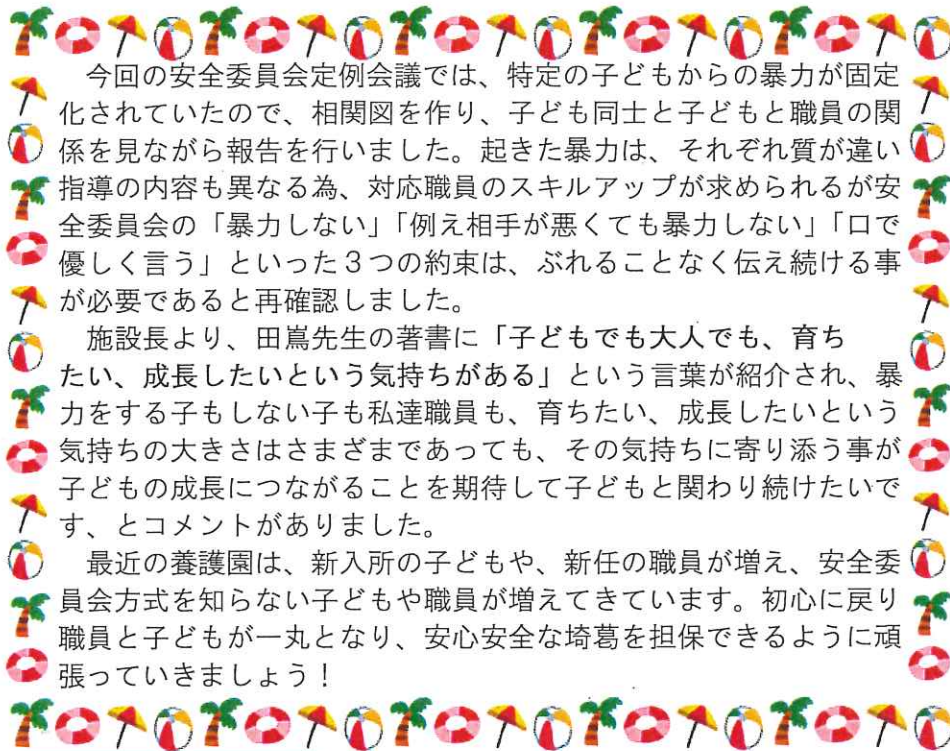 今回の安全委員会定例会議では、特定の子どもからの暴力が固定
化されていたので、相関図を作り、子ども同士と子どもと職員の関
係を見ながら報告を行いました。起きた暴力は、それぞれ質が違い
指導の内容も異なる為、対応職員のスキルアップが求められるが安
全委員会の「暴力しない」「例え相手が悪くても暴力しない」「口で
優しく言う」といった３つの約束は、ぶれることなく伝え続ける事
が必要であると再確認しました。
　施設長より、田嶌先生の著書に「子どもでも大人でも、育ち
たい、成長したいという気持ちがある」という言葉が紹介され、暴
力をする子もしない子も私達職員も、育ちたい、成長したいという
気持ちの大きさはさまざまであっても、その気持ちに寄り添う事が
子どもの成長につながることを期待して子どもと関わり続けたいで
す、とコメントがありました。
　最近の養護園は、新入所の子どもや、新任の職員が増え、安全委
員会方式を知らない子どもや職員が増えてきています。初心に戻り
職員と子どもが一丸となり、安心安全な埼葛を担保できるように頑
張っていきましょう！